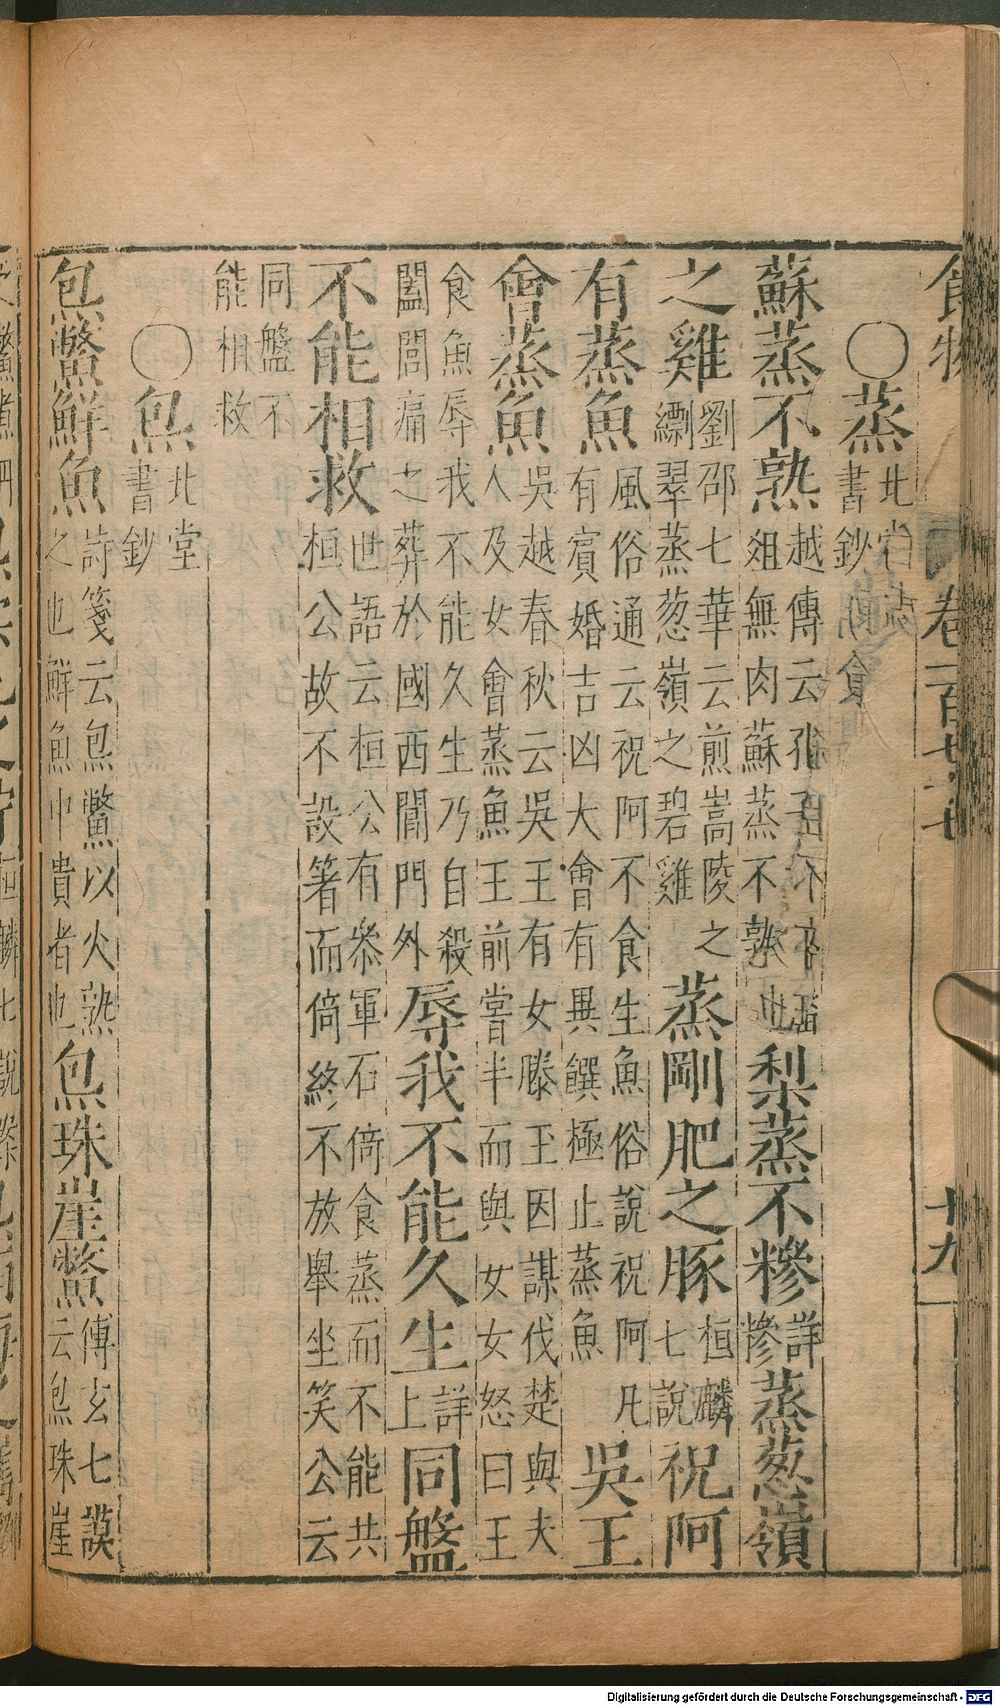 食物 卷一百七十七 十九
○蒸 北堂書鈔
蘇蒸不熟 越傳云 俎無肉蘇蒸不熟也 梨蒸不糝 詳糝 蒸葱嶺
之雞 劉邵七華云煎嵩陵之縹翠蒸葱嶺之碧雞 蒸剛肥之豚 桓麟七說 祝阿
有蒸魚 風俗通云祝阿不食生魚俗說祝阿凡有賓婚吉凶大會有異饌極止蒸魚 吳王
會蒸魚 吳越春秋云吳王有女滕王因謀伐楚與夫人及女會蒸魚王前嘗半而與女女怒曰王
食魚辱我不能久生乃自殺闔閭痛之葬於國西閶門外 辱我不能久生 詳上 同盤
不能相救 世語云桓公有叅軍石倚食蒸而不能共桓公故不設箸而倚終不放舉坐笑公云
同盤不能相救
○炰 北堂書鈔
炰鱉鮮魚 詩箋云炰鱉以火熟之也鮮魚中貴者也 炰珠崖鱉 傅玄七謨云炰珠崖
Digitalisierung gefördert durch die Deutsche Forschungsgemeinschaft - DFG